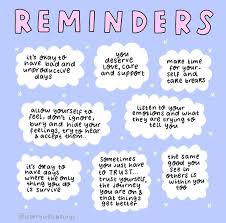 REMINDERS
it's okay to
have bad and
unproductive
days
you
deserve
love, care
and support
make time
for your-
self and
take breaks
allow yourself to
feel, don't ignore,
bury and hide your
feelings, try to hear
& accept them...
listen to your
emotions and what
they are trying to
tell you
it's okay to
have days
where the only
thing you do
is survive
sometimes
you just have
to TRUST...
trust yourself,
the journey
you are on &
that things
get better
the same
good you
see in
others is
within you
too